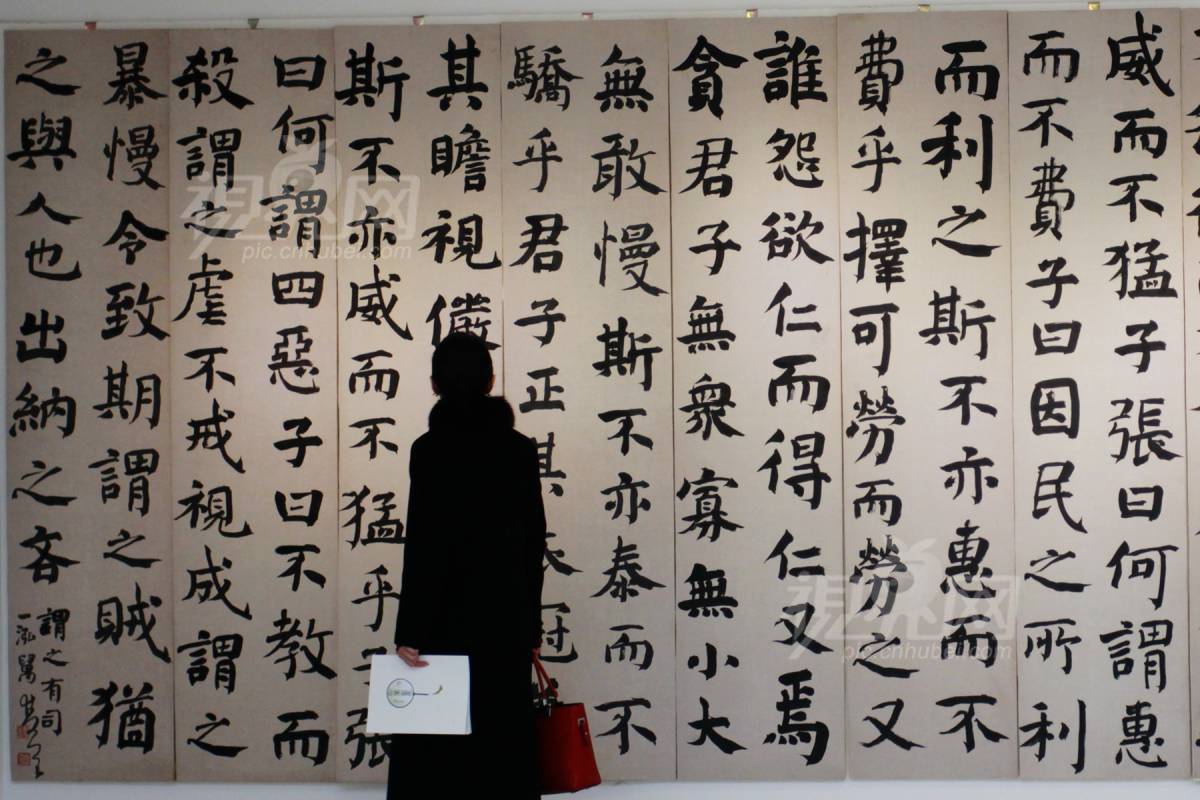 威而不猛子張曰何謂惠
而不費子曰因民之所利
而利之斯不亦惠而不
費乎擇可勞而勞之又
誰怨欲仁而得仁又焉
貪君子無衆寡無小大
無敢慢斯不亦泰而不
驕乎君子正其衣冠
其瞻視儼
斯不亦威而不猛乎子張
曰何謂四惡子曰不教而
殺謂之虐不戒視成謂之
暴慢令致期謂之賊猶
之與人也出納之吝
謂之有司
視界网
pic.cnhubei.com
視界网
pic.cnhubei.com